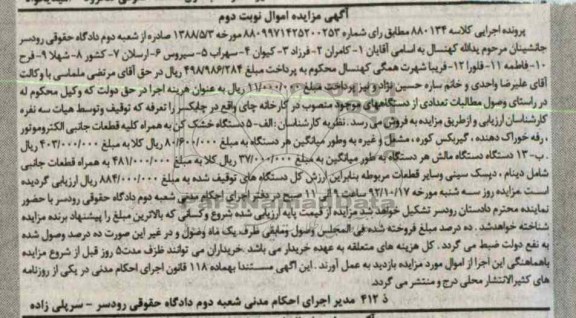 آگهی مزایده اموال نوبت دوم
پرونده اجرایی کلاسه ۸۸۰۱۳۴ مطابق رای شماره ۸۸۰۹۹۷۱۴۲۵۲۰۰۲۵۳ مورخه ۱۳۸۸/۵/۳ صادره از شعبه دوم دادگاه حقوقی رودسر
جانشینان مرحوم یدالله کهنسال به اسامی آقایان ۱- کامران ۲- فرزاد ۳- کیوان ۴- سهراب ۵- سیروس ۶- ارسلان ۷- کشور ۸- شهلا ۹- فرح
۱۰- فاطمه ۱۱- فلورا ۱۲- فریبا شهرت همگی کهنسال محکوم به پرداخت مبلغ ۴۹۸/۹۸۶/۲۸۴ ریال در حق آقای مرتضی ملماسی با وکالت
آقای علیرضا واحدی و خانم ساره حسین نژاد و نیز پرداخت مبلغ ۱۱/۰۰۰/۰۰۰ ریال به عنوان هزینه اجرا در حق دولت که وکیل محکوم له
در راستای وصول مطالبات تعدادی از دستگاههای موجود منصوب در کارخانه چای واقع در چابکسر را تعرفه که توقیف و توسط هیات سه نفره
کارشناسان ارزیابی و ازطریق مزایده به فروش می رسد . نظریه کارشناسان : الف- ۵ دستگاه خشک کن به همراه کلیه قطعات جانبی الکتروموتور
، رفه خوراک دهنده ، گیربکس کوره ، مشعل و غیره به وطور میانگین هر دستگاه به مبلغ ۸۰/۶۰۰/۰۰۰ ریال کلا به مبلغ ۴۰۳/۰۰۰/۰۰۰ ریال
. ب- ۱۳ دستگاه دستگاه مالش هر دستگاه به طور میانگین به مبلغ ۳۷/۰۰۰/۰۰۰ ریال کلا به مبلغ ۴۸۱/۰۰۰/۰۰۰ به همراه قطعات جانبی
شامل دینام ، دیسک سینی وسایر قطعات مربوطه بنابراین ارزش کل دستگاه های توقیف شده به مبلغ ۸۸۴/۰۰۰/۰۰۰ ریال ارزیابی گردیده
است مزایده روز سه شنبه مورخه ۹۲/۱۰/۱۷ ساعت ۹ الی ۱۱ صبح در دفتر اجرای احکام مدنی شعبه دوم دادگاه حقوقی رودسر با حضور
نماینده محترم دادستان رودسر تشکیل خواهد شد مزایده از قیمت پایه ارزیابی شده شروع وکسانی که بالاترین مبلغ را پیشنهاد برنده مزایده
شناخته خواهدشد . ده درصد مبلغ فروخته شده فی المجلس وصول ومابقی ظرف یک ماه وصول و در غیر این صورت ده درصد وصول شده
به نفع دولت ضبط می گردد . کل هزینه های متعلقه به عهده خریدار می باشد .خریداران می توانند ظرف مدت ۵ روز قبل از شروع مزایده
باهماهنگی این اجرا از اموال مورد مزایده بازدید به عمل آورند . این آگهی مستندا بهماده ۱۱۸ قانون اجرای احکام مدنی در یکی از روزنامه
های کثیرالانتشار محلی درج و منتشر می گردد.
ذ ۴۱۲ مدیر اجرای احکام مدنی شعبه دوم دادگاه حقوقی رودسر - سرپلی زاده